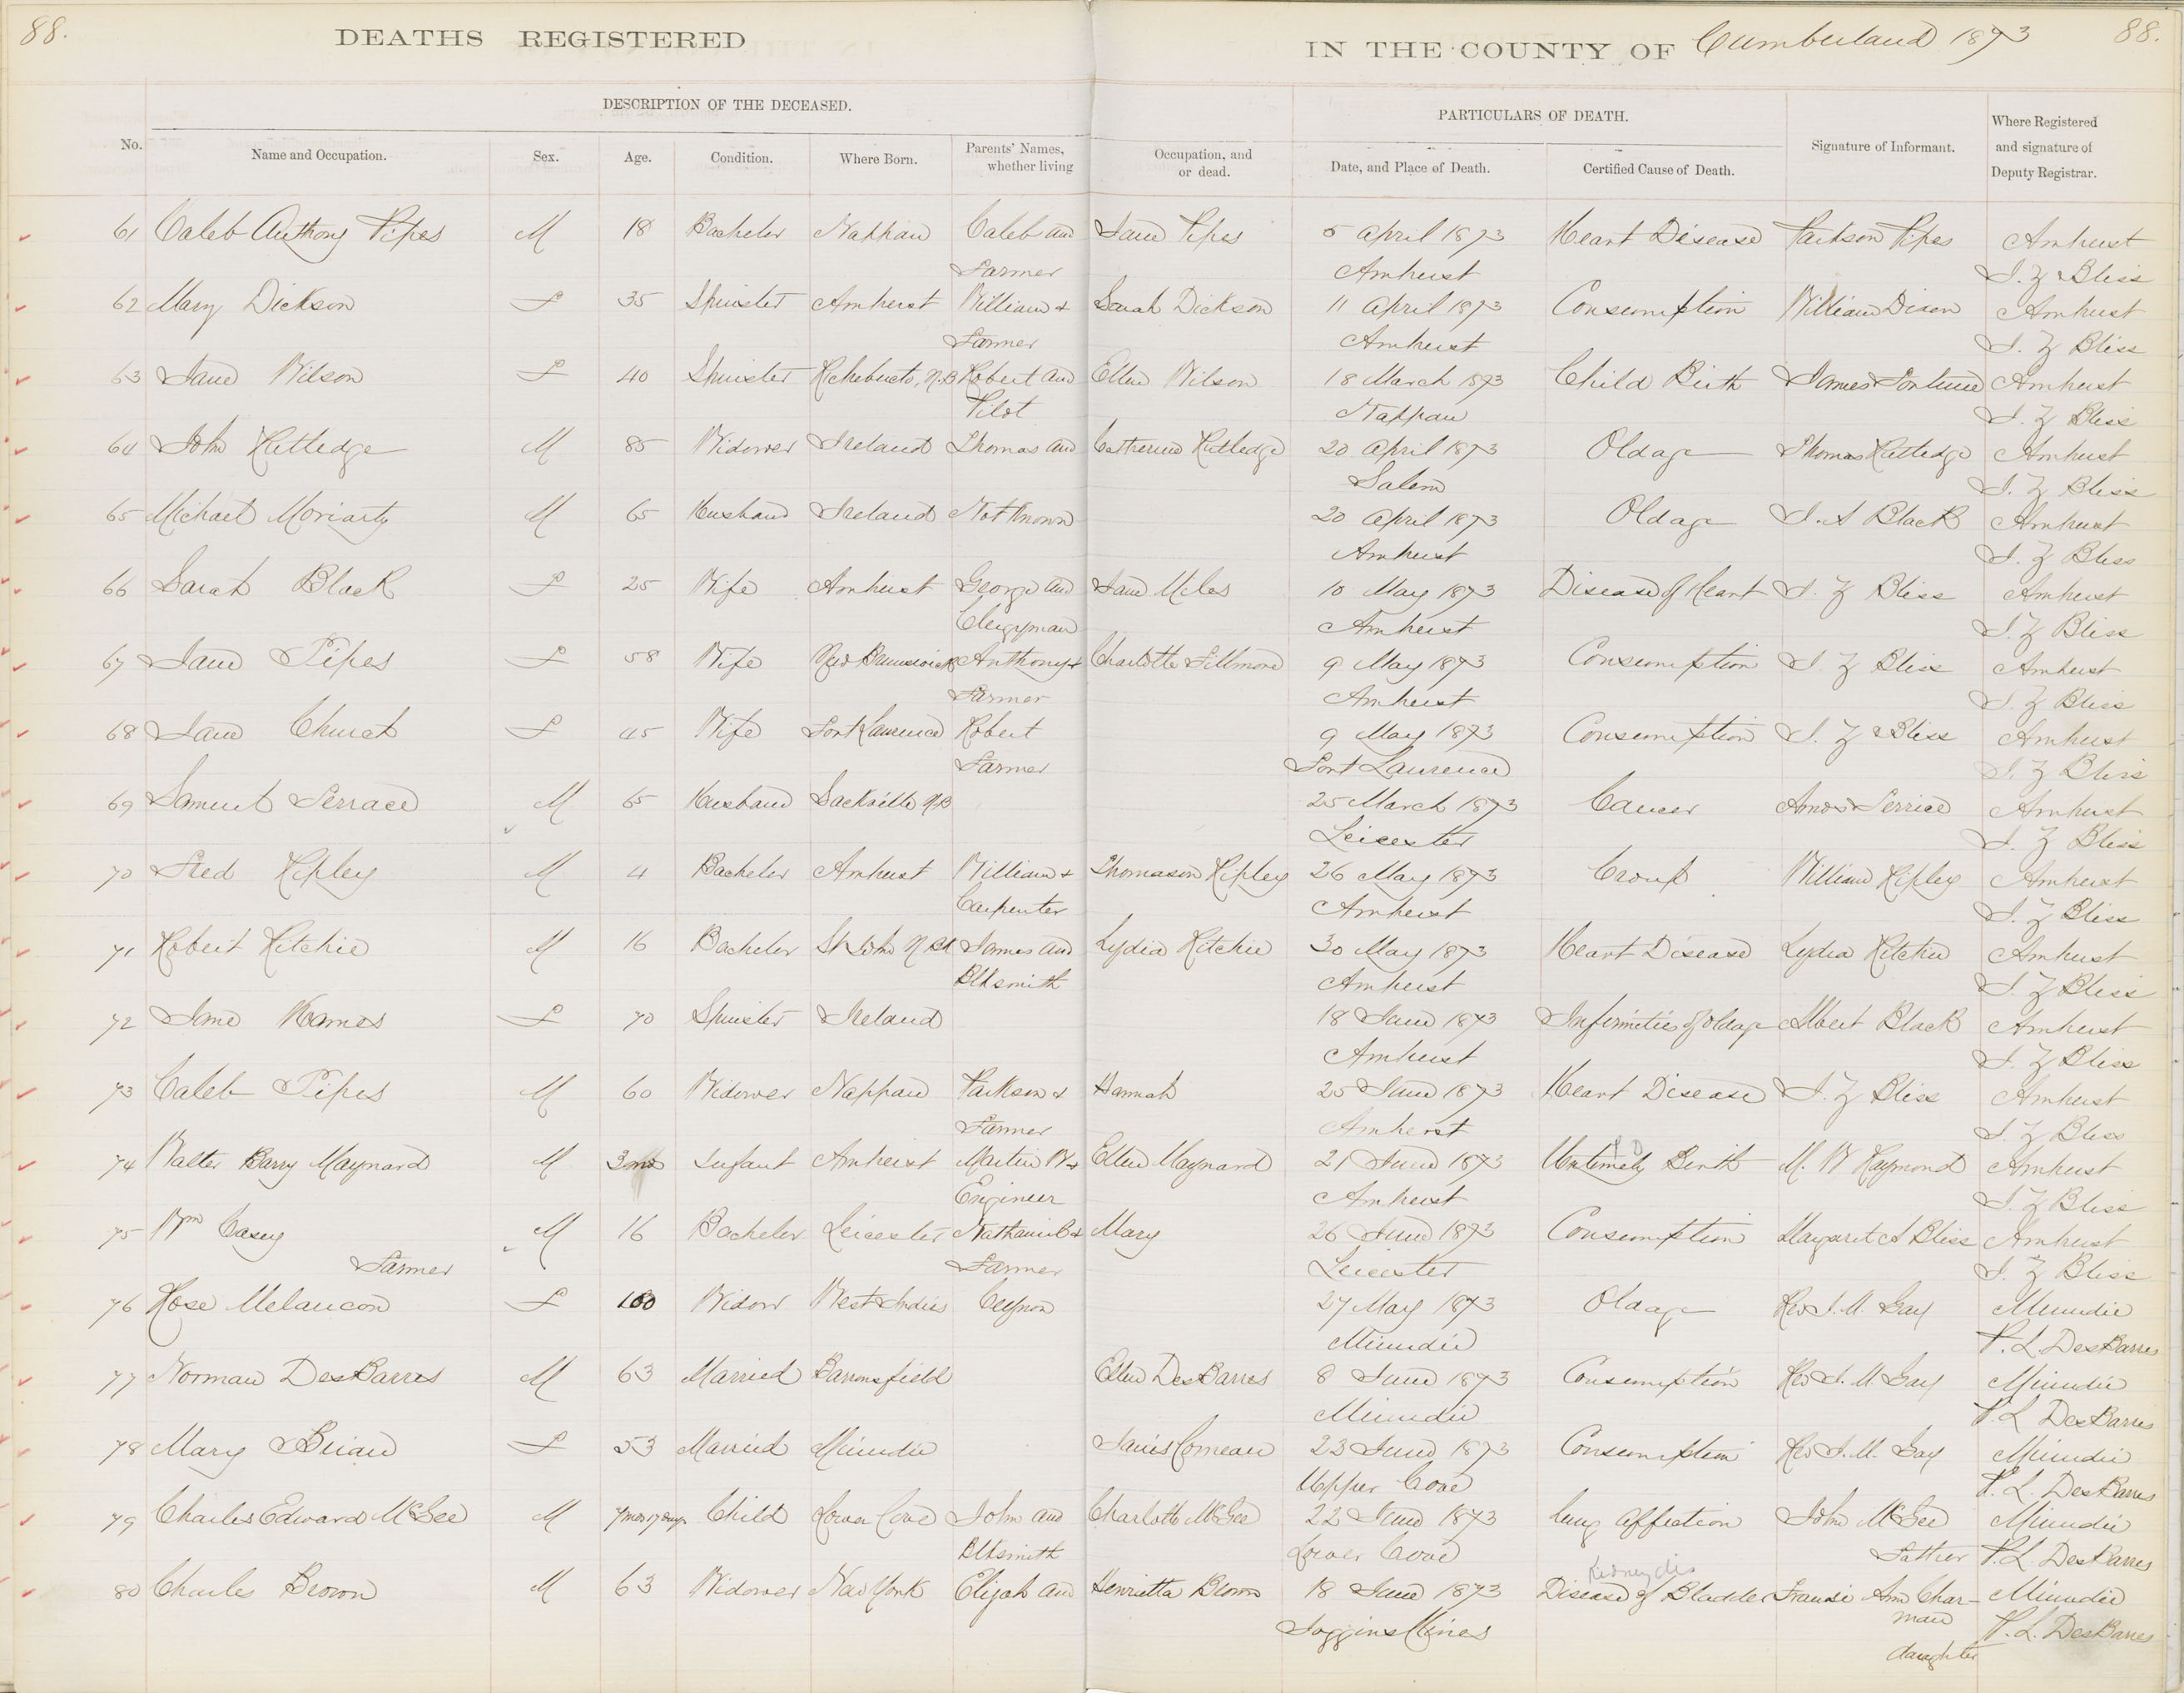 88.
DEATHS REGISTERED IN THE COUNTY OF Cumberland 1873
88.
DESCRIPTION OF THE DECEASED. PARTICULARS OF DEATH.
No. Name and Occupation. Sex. Age. Condition. Where Born. Parents' Names, whether living Occupation, and or dead. Date, and Place of Death. Certified Cause of Death. Signature of Informant. Where Registered and signature of Deputy Registrar.
61 Caleb Anthony Pipes M 18 Bacheler Nappan Caleb and Jane Pipes 5 April 1873 Heart Disease Parkson Pipes Amherst
Farmer Amherst J. Z Bliss
62 Mary Dickson F 35 Spinster Amherst William + Sarah Dickson 11 April 1873 Consumption William Dixon Amherst
Farmer Amherst J. Z Bliss
63 Jane Wilson F 40 Spinster Richebucto, N.B Robert and Ellen Wilson 18 March 1873 Child Birth James Amherst
Pilot Nappan J. Z Bliss
64 John Rutledge M 85 Widower Ireland Thomas and Catherine Rutledge 20 April 1873 Old age Thomas Rutledge Amherst
Salem J. Z Bliss
65 Michael Moriarty M 65 Husband Ireland Not Known 20 April 1873 Old age J. A Black Amherst
Amherst J. Z Bliss
66 Sarah Black F 25 Wife Amherst George and Jane Miles 10 May 1873 Disease of Heart J. Z Bliss Amherst
Clergyman Amherst J. Z Bliss
67 Jane Pipes F 58 Wife New Brunswick Anthony + Charlotte Fillmore 9 May 1873 Consumption J. Z Bliss Amherst
Farmer Amherst J. Z Bliss
68 Jane Church F 45 Wife Fort Laurence Robert 9 May 1873 Consumption J. Z Bliss Amherst
Farmer Fort Laurence J. Z Bliss
69 Samuel M 65 Husband Sackville N.B 25 March 1873 Cancer Amos Amherst
Leicester J. Z Bliss
70 Fred Ripley M 4 Bacheler Amherst William + Thomason Ripley 26 May 1873 Croup William Ripley Amherst
Carpenter Amherst J. Z Bliss
71 Robert Ritchie M 16 Bacheler St John N.B James and Lydia Ritchie 30 May 1873 Heart Disease Lydia Ritchie Amherst
Blksmith Amherst J. Z Bliss
72 Jane F 70 Spinster Ireland 18 June 1873 Infirmities of Old age Albert Black Amherst
Amherst J. Z Bliss
73 Caleb Pipes M 60 Widower Nappan Parkson + Hannah 25 June 1873 Heart Disease J. Z Bliss Amherst
Farmer Amherst J. Z Bliss
74 Walter Barry Maynard M 3 mos Infant Amherst Martin W + Ellen Maynard 21 June 1873 Untimely Birth M. W Raymond Amherst
Engineer Amherst J. Z Bliss
75 Wm Casey M 16 Bacheler Leicester Nathaniel + Mary 26 June 1873 Consumption Margaret A Bliss Amherst
Farmer Farmer Leicester J. Z Bliss
76 Rose Melancon F 100 Widow West Indies 27 May 1873 Old age Rev J. M. Gay Minudie
Minudie P. L. DesBarres
77 Norman DesBarres M 63 Married Barronsfield Ellen DesBarres 8 June 1873 Consumption Rev J. M. Gay Minudie
Minudie P. L DesBarres
78 Mary Brian F 53 Married Minudie Comeau 23 June 1873 Consumption Rev J. M. Gay Minudie
Upper Cove P. L. DesBarres
79 Charles Edward McGee M 7 mos 17 days Child Lower Cove John and Charlotte McGee 22 June 1873 Lung Affection John McGee Minudie
Blksmith Lower Cove Father P. L. DesBarres
Kidney dis
80 Charles Brown M 63 Widower New York Elijah and Henrietta Brown 18 June 1873 Disease of Bladder Ann Char- Minudie
man
Joggins Mines P. L. DesBarres
daughter